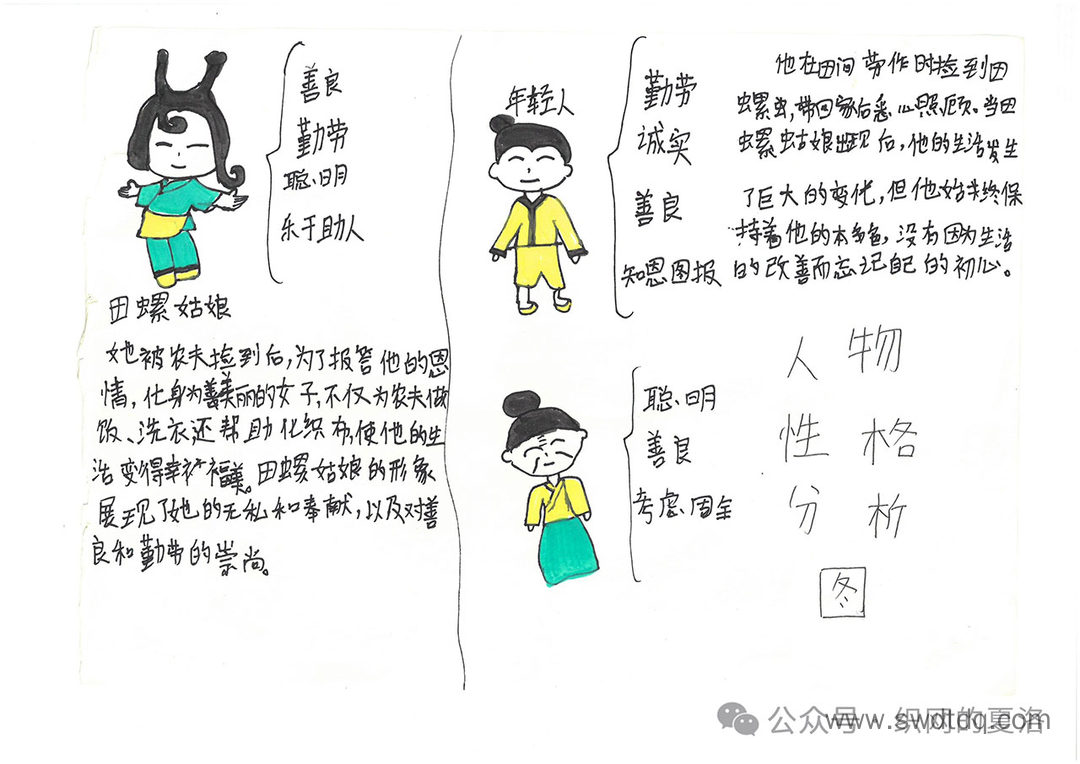 善良
勤劳
聪明
乐于助人
田螺姑娘
她被农夫捡到后,为了报答他的恩
情,化身为美丽的女子,不仅为农夫做
饭、洗衣还帮助他织布,使他的生
活变得幸福美。田螺姑娘的形象
展现了她的无私和奉献,以及对善
良和勤劳的崇尚。
年轻人
勤劳
诚实
善良
知恩图报
他在田间劳作时捡到田
螺虫,带回家后悉心照顾。当田
螺姑娘出现后,他的生活发生
了巨大的变化,但他始终保
持着他的本色,没有因为生活
的改善而忘记自己的初心。
聪明
善良
考虑周全
人物
性格
分析
图
公众号
织网的夏洛
www.swdtdq.com